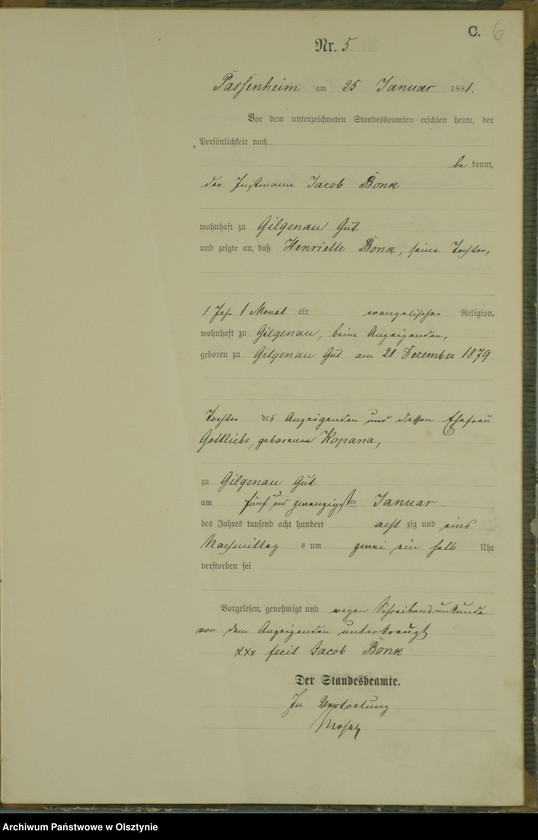 C. 6
Nr. 5
Passenheim am 25 Januar 1881.
Vor dem unterzeichneten Standesbeamten erschien heute, der
Persönlichkeit nach
be kannt,
der Instmann Jacob Bonk
wohnhaft zu Gilgenau Gut
und zeigte an, daß Henriette Bonk, seine Tochter,
1 Jahr 1 Monat alt evangelischer Religion,
wohnhaft zu Gilgenau, beim Anzeigenden,
geboren zu Gilgenau Gut am 21 December 1879
Tochter des Anzeigenden und dessen Ehefrau
Gottliebe, geborenen Kopana,
zu Gilgenau Gut
am fünf und zwanzigsten Januar
des Jahres tausend acht hundert acht zig und eins
Nachmittag s um zwei ein halb Uhr
verstorben sei
Vorgelesen, genehmigt und wegen Schreibensunkunde
von dem Anzeigenden unterkreuzt
xxx fecit Jacob Bonk
Der Standesbeamte.
In Vertretung
Archiwum Państwowe w Olsztynie